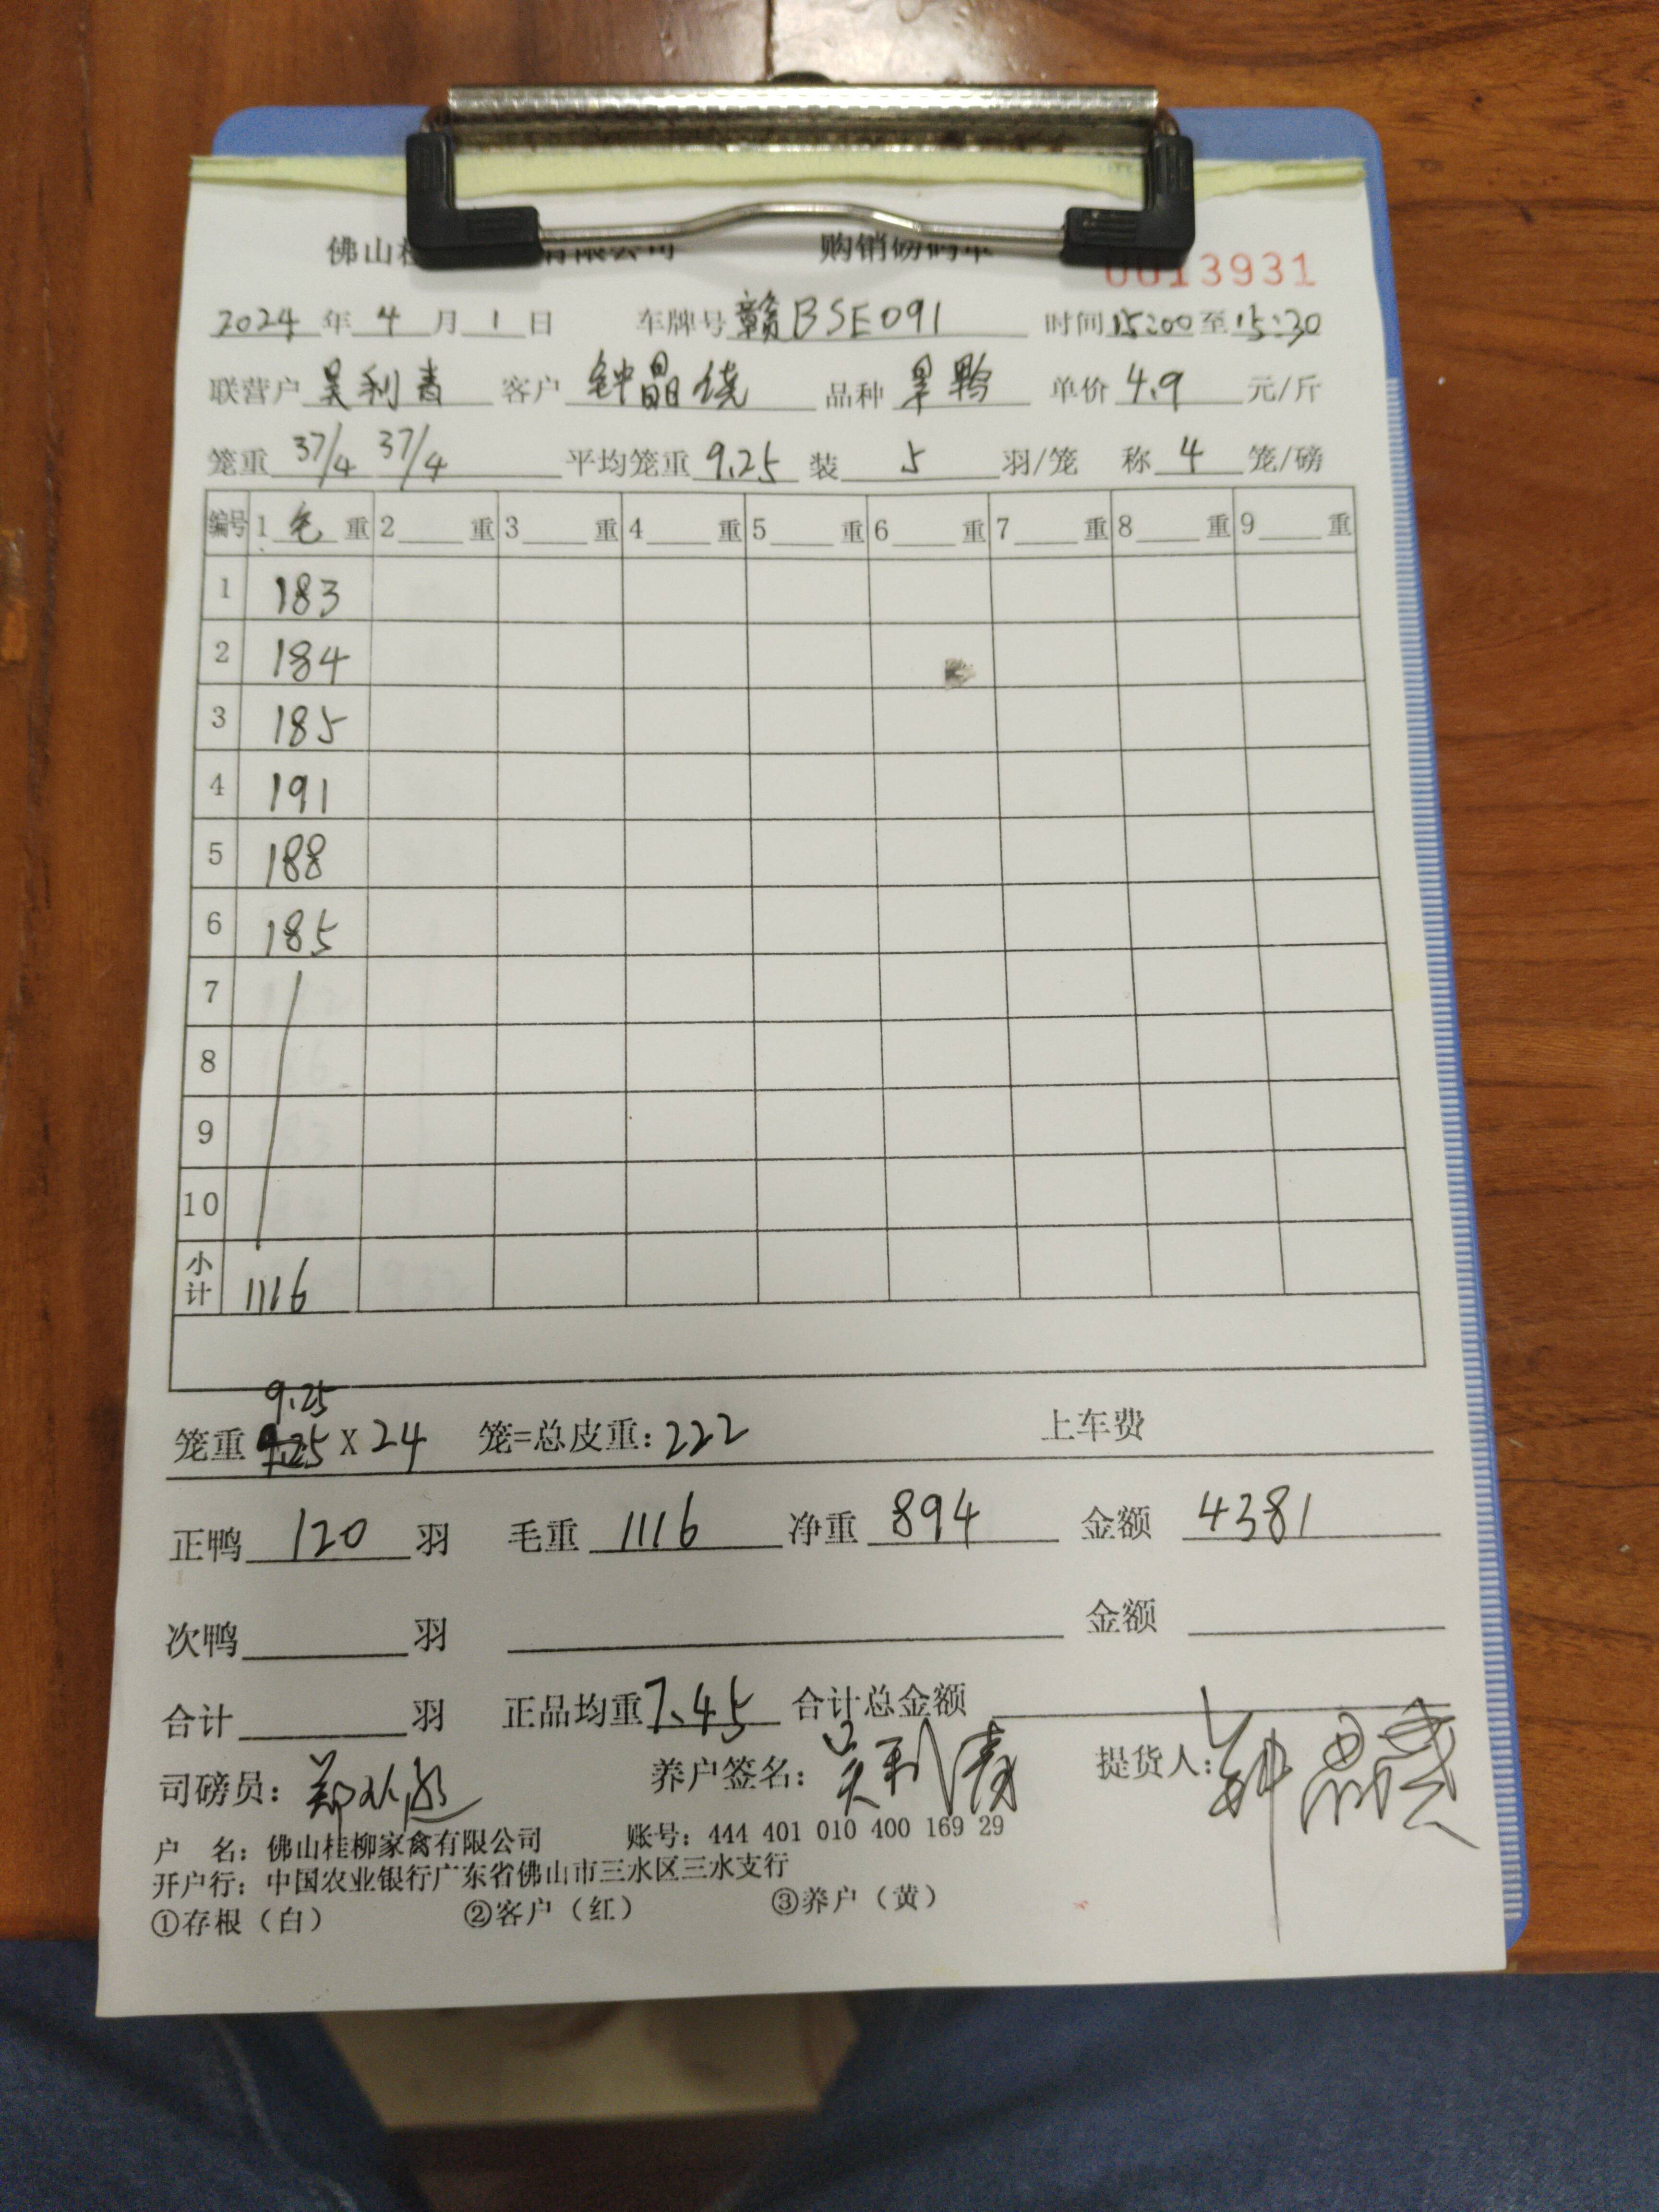 佛山桂 有限公司 购销磅码单 0013931
2024 年 4 月 1 日 车牌号 赣BSE091 时间 15:00 至 15:30
联营户 吴利青 客户 钟晶 品种 单价 4.9 元/斤
笼重 37/4 37/4 平均笼重 9.25 装 5 羽/笼 称 4 笼/磅
编号 1 毛 重 2 重 3 重 4 重 5 重 6 重 7 重 8 重 9 重
1 183
2 184
3 185
4 191
5 188
6 185
7
8
9
10
小计 1116
9.25
笼重 9.25 X 24 笼=总皮重: 222 上车费
正鸭 120 羽 毛重 1116 净重 894 金额 4381
次鸭 羽 金额
合计 羽 正品均重 7.45 合计总金额
司磅员: 养户签名: 吴利青 提货人: 钟晶
户 名: 佛山桂柳家禽有限公司 账号: 444 401 010 400 169 29
开户行: 中国农业银行广东省佛山市三水区三水支行
①存根（白） ②客户（红） ③养户（黄）